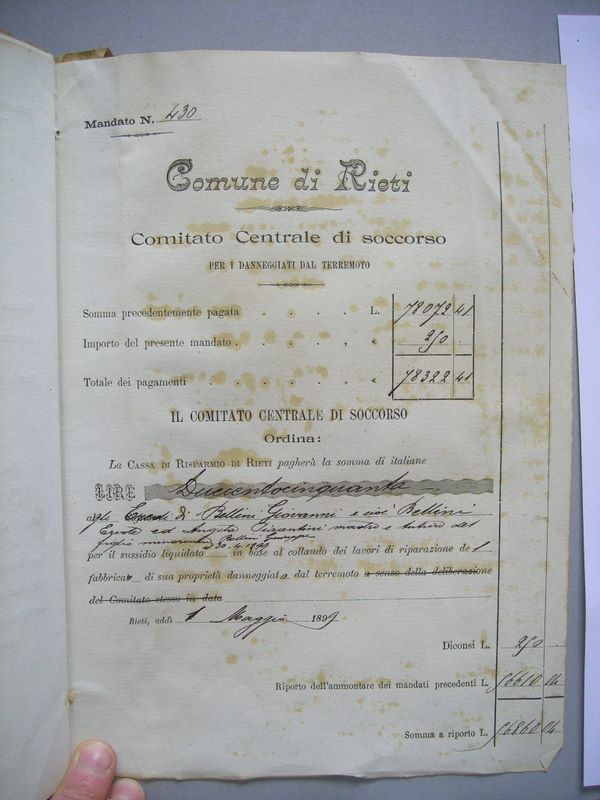 Mandato N. 430
Comune di Rieti
Comitato Centrale di soccorso
PER I DANNEGGIATI DAL TERREMOTO
Somma precedentemente pagata . . . . L. 78072 41
Importo del presente mandato . . . . « 250 .
Totale dei pagamenti . . . . . . « 78322 41
IL COMITATO CENTRALE DI SOCCORSO
Ordina:
La CASSA DI RISPARMIO DI RIETI pagherà la somma di italiane
LIRE Duecentocinquanta
agli Eredi di Bellini Giovanni e cioè Bellini
Oreste ed Augusta madre e tutrice del
figlio minorenne Bellini Giuseppe
per il sussidio liquidato il 30.4.1899 in base al collaudo dei lavori di riparazione del
fabbricato di sua proprietà danneggiato dal terremoto a senso della deliberazione
del Comitato stesso in data
Rieti, addì 1 Maggio 1899
Diconsi L. 250
Riporto dell'ammontare dei mandati precedenti L. 56610 04
Somma a riporto L. 56860 04